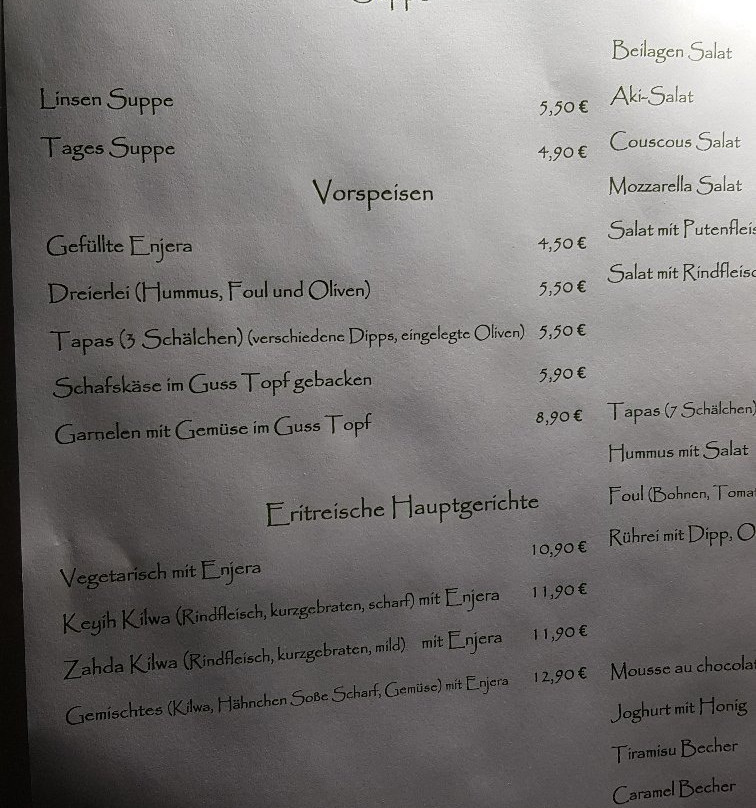 Linsen Suppe 5,50 €
Tages Suppe 4,90 €
Vorspeisen
Gefüllte Enjera 4,50 €
Dreierlei (Hummus, Foul und Oliven) 5,50 €
Tapas (3 Schälchen) (verschiedene Dipps, eingelegte Oliven) 5,50 €
Schafskäse im Guss Topf gebacken 5,90 €
Garnelen mit Gemüse im Guss Topf 8,90 €
Eritreische Hauptgerichte
Vegetarisch mit Enjera 10,90 €
Keyih Kilwa (Rindfleisch, kurzgebraten, scharf) mit Enjera 11,90 €
Zahda Kilwa (Rindfleisch, kurzgebraten, mild) mit Enjera 11,90 €
Gemischtes (Kilwa, Hähnchen Soße Scharf, Gemüse) mit Enjera 12,90 €
Beilagen Salat
Aki-Salat
Couscous Salat
Mozzarella Salat
Salat mit Putenfleis
Salat mit Rindfleisc
Tapas (7 Schälchen)
Hummus mit Salat
Foul (Bohnen, Toma
Rührei mit Dipp, O
Mousse au chocola
Joghurt mit Honig
Tiramisu Becher
Caramel Becher